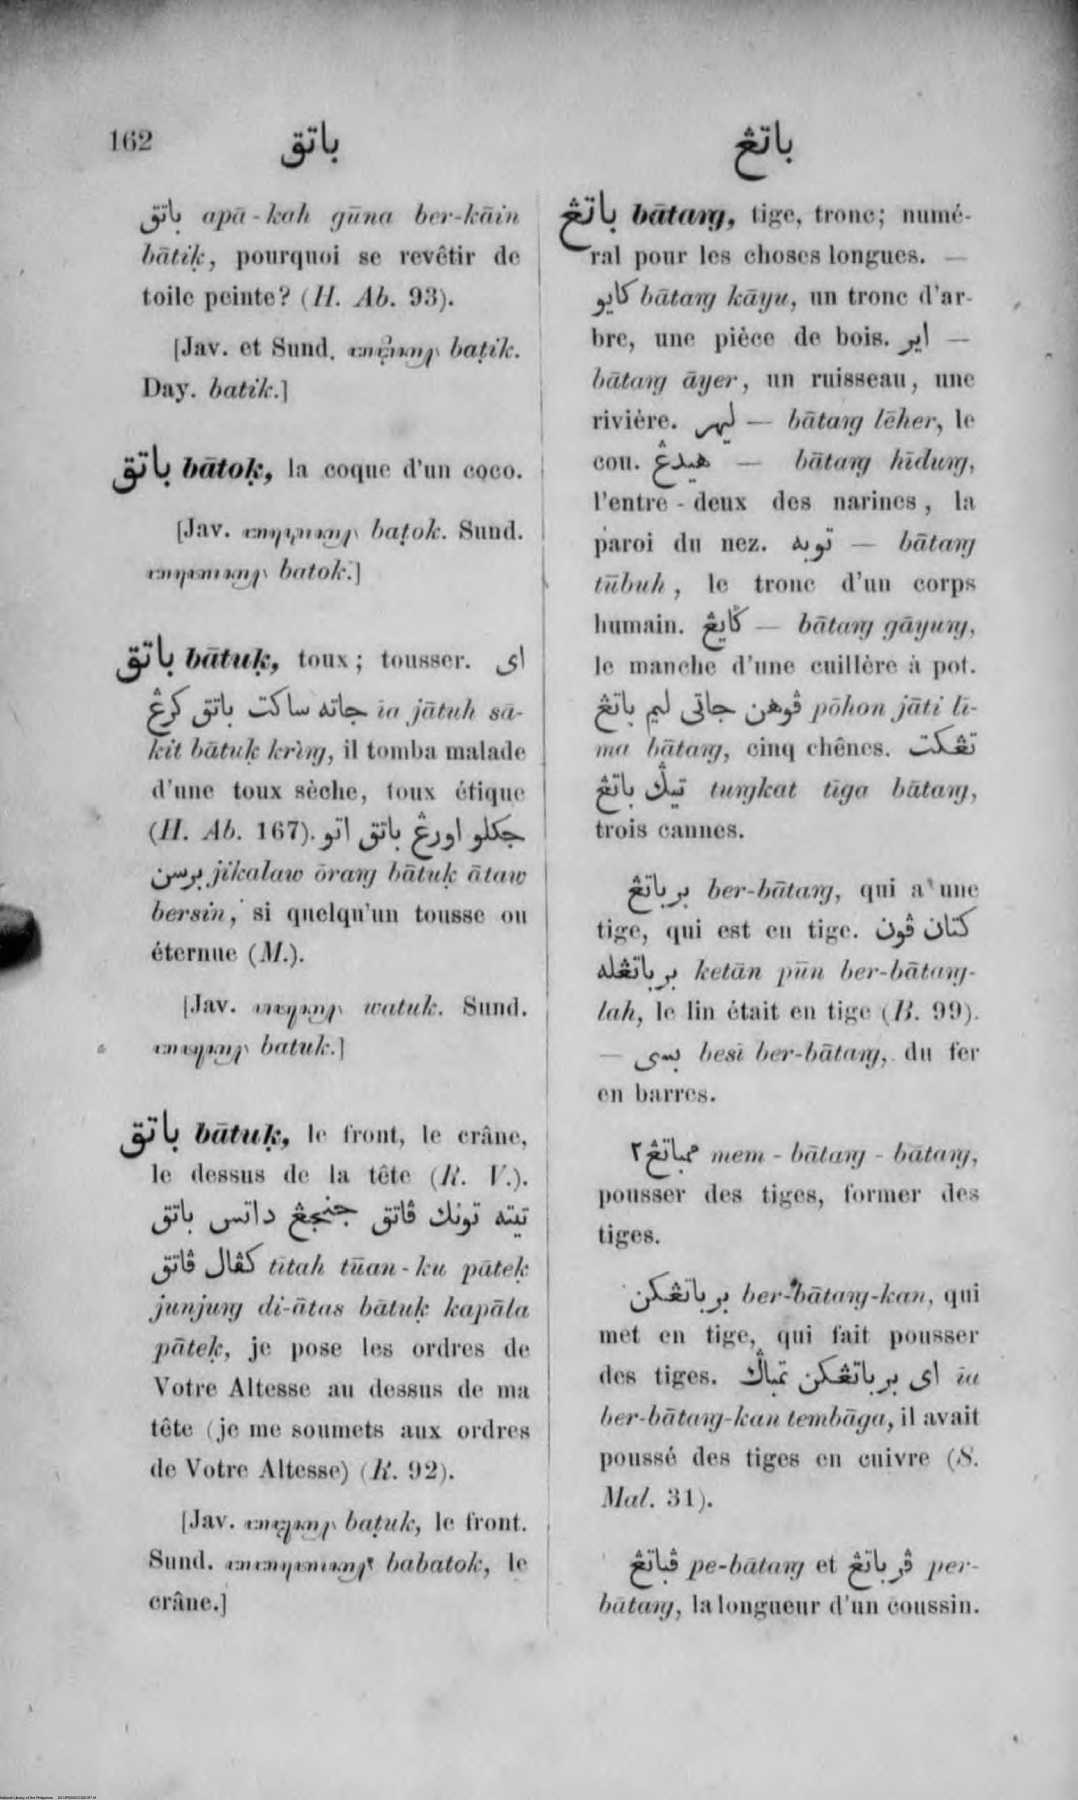 162
باتق
باتڠ
باتق apā-kah gūna ber-kāin
bātiḳ, pourquoi se revêtir de
toile peinte? (H. Ab. 93).
[Jav. et Sund. baṭik.
Day. batik.]
باتق bātoḳ, la coque d'un coco.
[Jav. baṭok. Sund.
batok.]
باتق bātuḳ, toux; tousser. اى
جاته ساكت باتق كرڠ ia jātuh sā-
kit bātuḳ kriṅg, il tomba malade
d'une toux sèche, toux étique
(H. Ab. 167). جكلو اورڠ باتق اتو
برسن jikalaw ōraṅg bātuḳ ātaw
bersin, si quelqu'un tousse ou
éternue (M.).
[Jav. watuk. Sund.
batuk.]
باتق bātuḳ, le front, le crâne,
le dessus de la tête (R. V.).
تيته تونك ڤاتق جنجڠ داتس باتق
كڤال ڤاتق tītah tūan-ku pāteḳ
junjuṅg di-ātas bātuḳ kapāla
pāteḳ, je pose les ordres de
Votre Altesse au dessus de ma
tête (je me soumets aux ordres
de Votre Altesse) (R. 92).
[Jav. baṭuk, le front.
Sund. babatok, le
crâne.]
باتڠ bātaṅg, tige, tronc; numé-
ral pour les choses longues. —
كايو bātaṅg kāyu, un tronc d'ar-
bre, une pièce de bois. اير —
bātaṅg āyer, un ruisseau, une
rivière. ليهر — bātaṅg lēher, le
cou. هيدڠ — bātaṅg hīduṅg,
l'entre-deux des narines, la
paroi du nez. توبه — bātaṅg
tūbuh, le tronc d'un corps
humain. ݢايڠ — bātaṅg gāyuṅg,
le manche d'une cuillère à pot.
ڤوهن جاتى ليم باتڠ pōhon jāti lī-
ma bātaṅg, cinq chênes. تڠكت
تيݢ باتڠ tuṅgkat tīga bātaṅg,
trois cannes.
برباتڠ ber-bātaṅg, qui a une
tige, qui est en tige. كتان ڤون
برباتڠله ketān pūn ber-bātaṅg-
lah, le lin était en tige (B. 99).
— بسى besi ber-bātaṅg, du fer
en barres.
ممباتڠ٢ mem-bātaṅg-bātaṅg,
pousser des tiges, former des
tiges.
برباتڠكن ber-bātaṅg-kan, qui
met en tige, qui fait pousser
des tiges. اى برباتڠكن تمباݢ īa
ber-bātaṅg-kan tembāga, il avait
poussé des tiges en cuivre (S.
Mal. 31).
ڤباتڠ pe-bātaṅg et ڤرباتڠ per-
bātaṅg, la longueur d'un coussin.